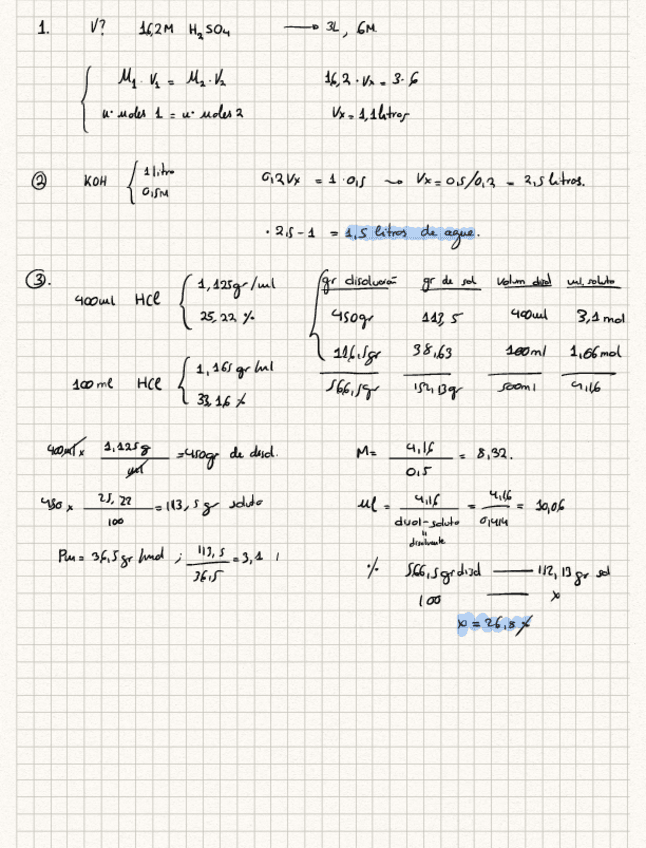 1. V? 16,2M H₂SO₄ → 3L, 6M
M₁·V₁ = M₂·V₂ 16,2·Vx = 3·6
nº moles 1 = nº moles 2 Vx = 1,1 litros
② KOH { 1 litro 0,2Vx = 1·0,5 → Vx = 0,5/0,2 = 2,5 litros.
0,5M
· 2,5-1 = 1,5 litros de agua.
③. 400ml HCl { 1,125gr/ml
25,22 %
gr disolución gr de sol Volum disol mol. soluto
450gr 113,5 400ml 3,1 mol
116,5gr 38,63 100ml 1,06mol
566,5gr 152,13gr 500ml 4,16
100ml HCl { 1,165 gr/ml
33,16 %
400ml x 1,125g / ml = 450gr de disol.
450 x 25,22 / 100 = 113,5 g soluto
Pm = 36,5 gr/mol ; 113,5 / 36,5 = 3,1
M = 4,16 / 0,5 = 8,32.
ml = 4,16 / disol-soluto = 4,16 / 0,414 = 10,06
"
disolvente
% 566,5gr disol — 152,13 gr sol
100 — x
x = 26,8 %